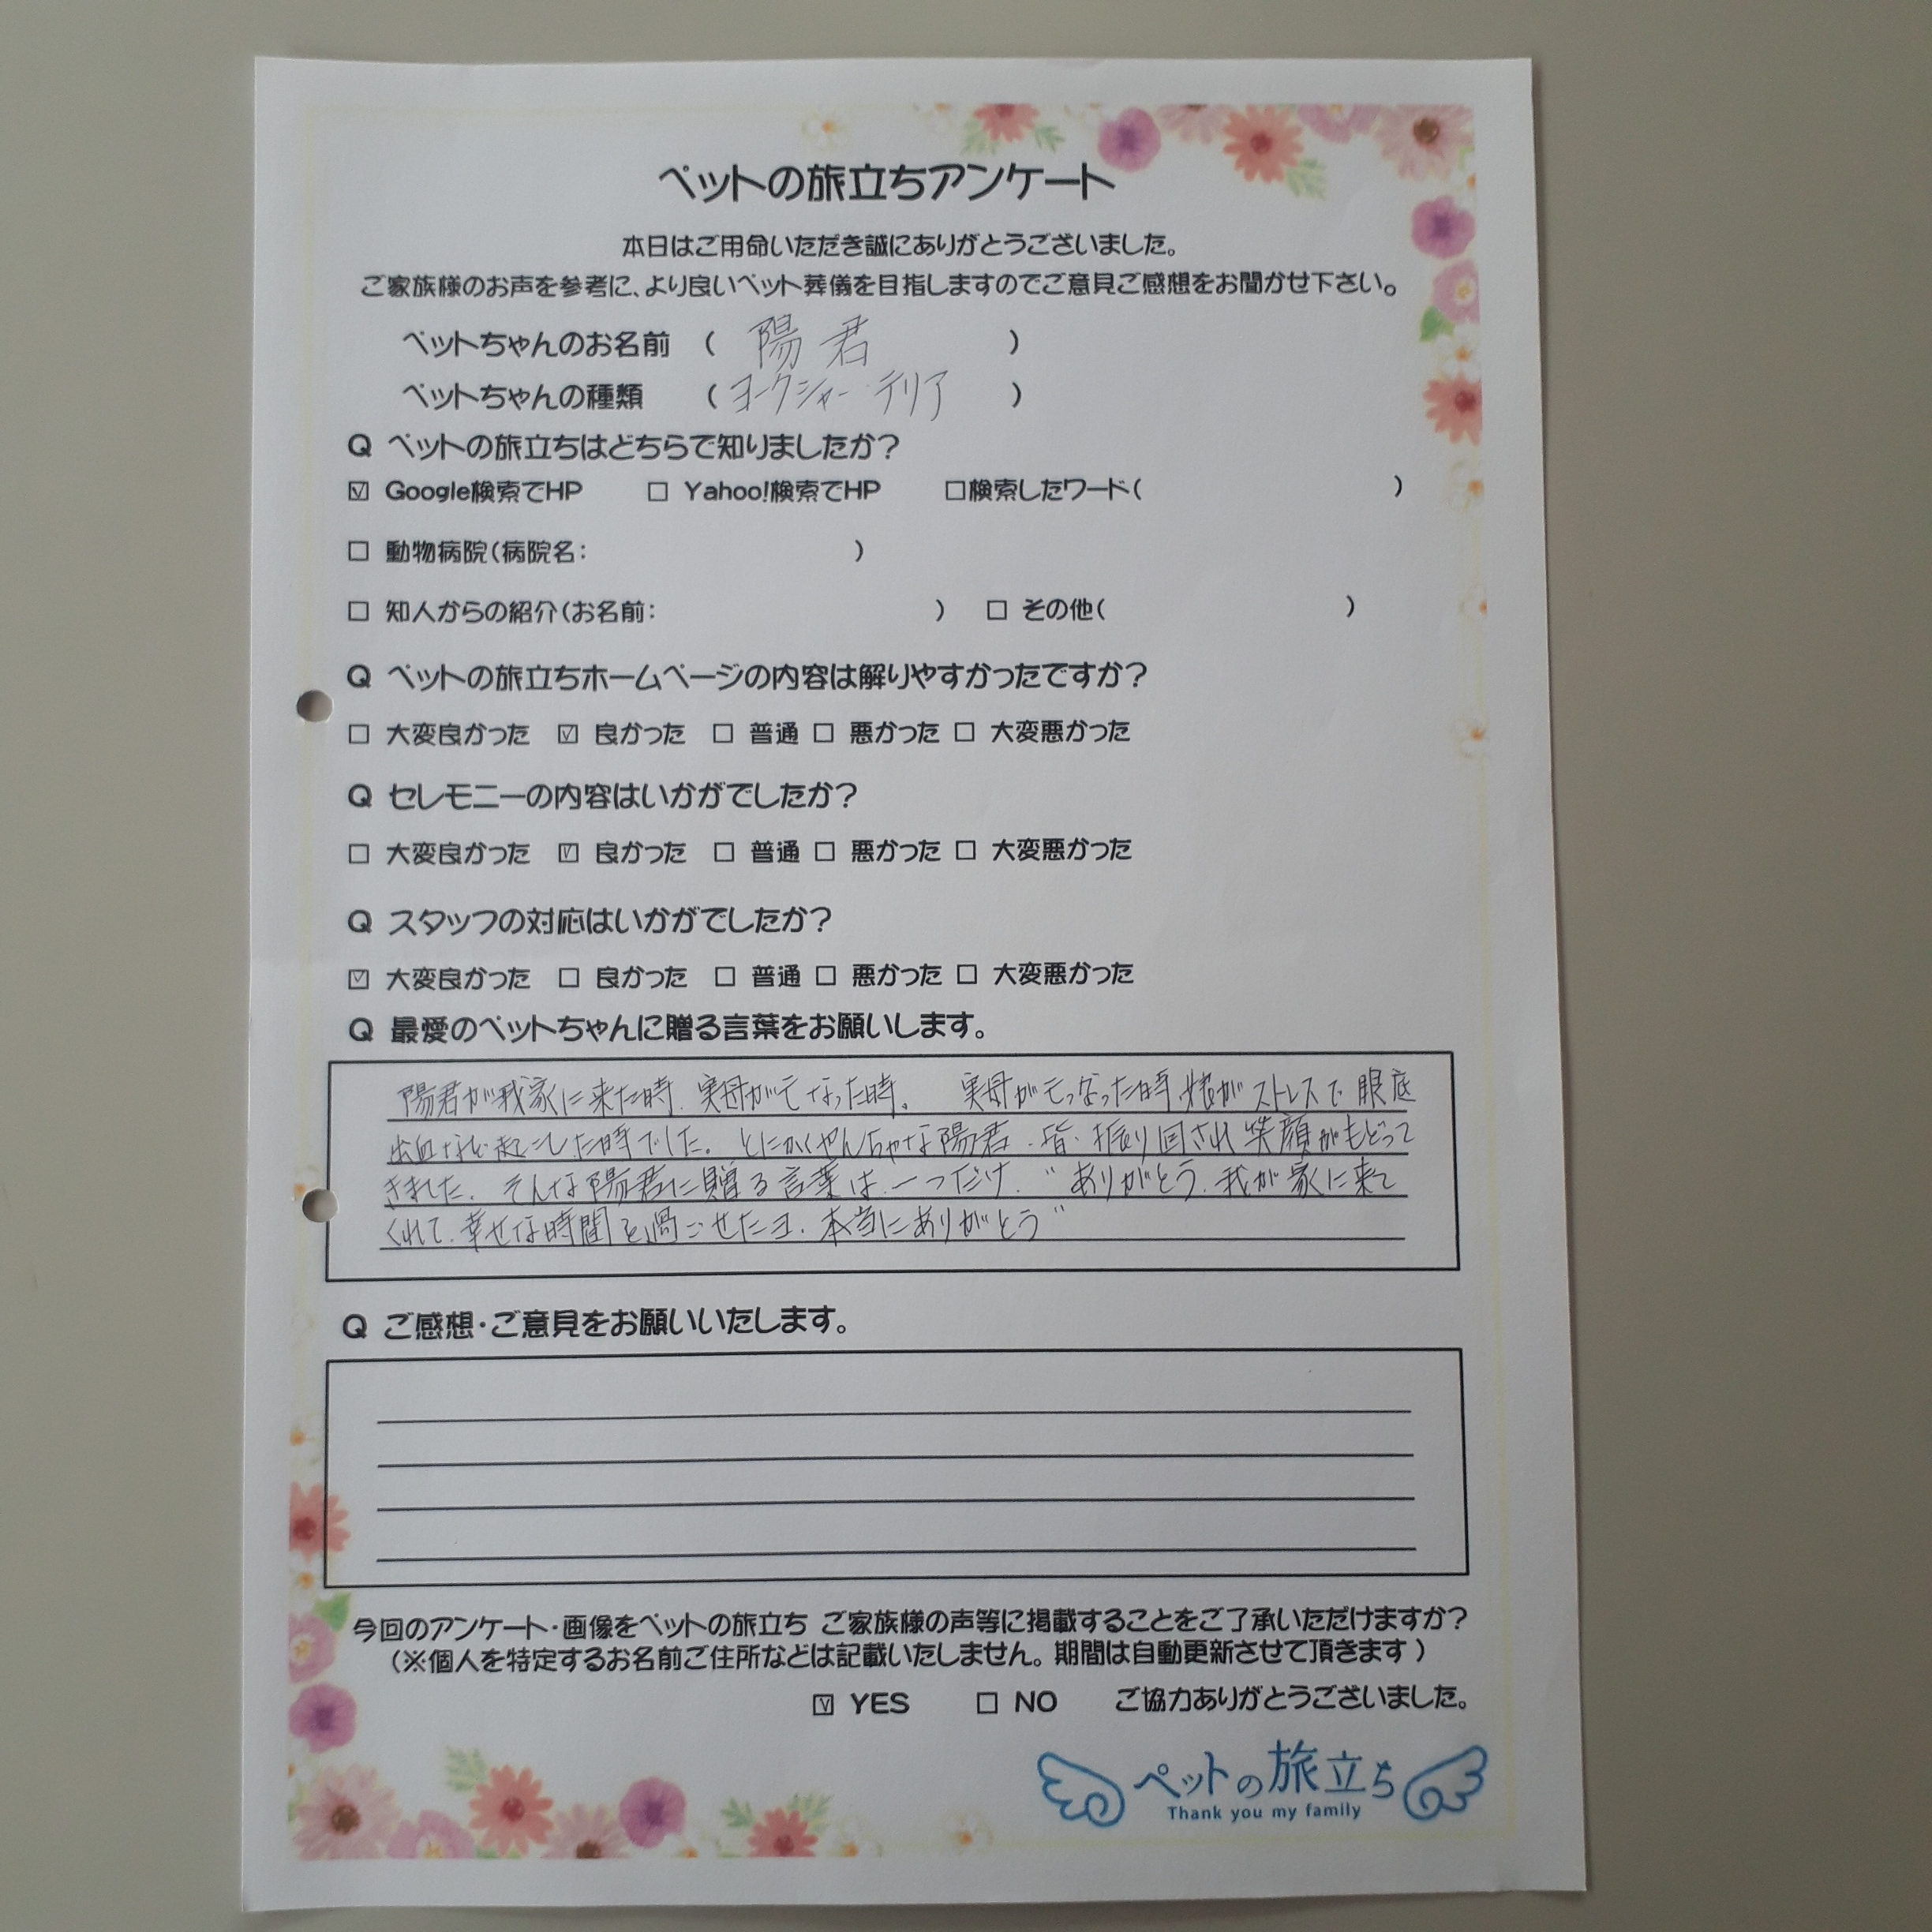 ペットの旅立ちアンケート
本日はご用命いただき誠にありがとうございました。
ご家族様のお声を参考に、より良いペット葬儀を目指しますのでご意見ご感想をお聞かせ下さい。
ペットちゃんのお名前 ( 陽君 )
ペットちゃんの種類 ( ヨークシャーテリア )
Q ペットの旅立ちはどちらで知りましたか?
☑ Google検索でHP □ Yahoo!検索でHP □検索したワード( )
□ 動物病院(病院名: )
□ 知人からの紹介(お名前: ) □ その他( )
Q ペットの旅立ちホームページの内容は解りやすかったですか?
□ 大変良かった ☑ 良かった □ 普通 □ 悪かった □ 大変悪かった
Q セレモニーの内容はいかがでしたか?
□ 大変良かった ☑ 良かった □ 普通 □ 悪かった □ 大変悪かった
Q スタッフの対応はいかがでしたか?
☑ 大変良かった □ 良かった □ 普通 □ 悪かった □ 大変悪かった
Q 最愛のペットちゃんに贈る言葉をお願いします。
陽君が我家に来た時、実母が亡なった時。 実母が亡くなった時、娘がストレスで眼底
出血など起こした時でした。とにかくやんちゃな陽君、皆、振り回され笑顔がもどって
きました。そんな陽君に贈る言葉は、一つだけ、"ありがとう、我が家に来て
くれて、幸せな時間を過ごせたヨ、本当にありがとう"
Q ご感想・ご意見をお願いいたします。
今回のアンケート・画像をペットの旅立ち ご家族様の声等に掲載することをご了承いただけますか?
(※個人を特定するお名前ご住所などは記載いたしません。期間は自動更新させて頂きます)
☑ YES □ NO ご協力ありがとうございました。
ペットの旅立ち
Thank you my family